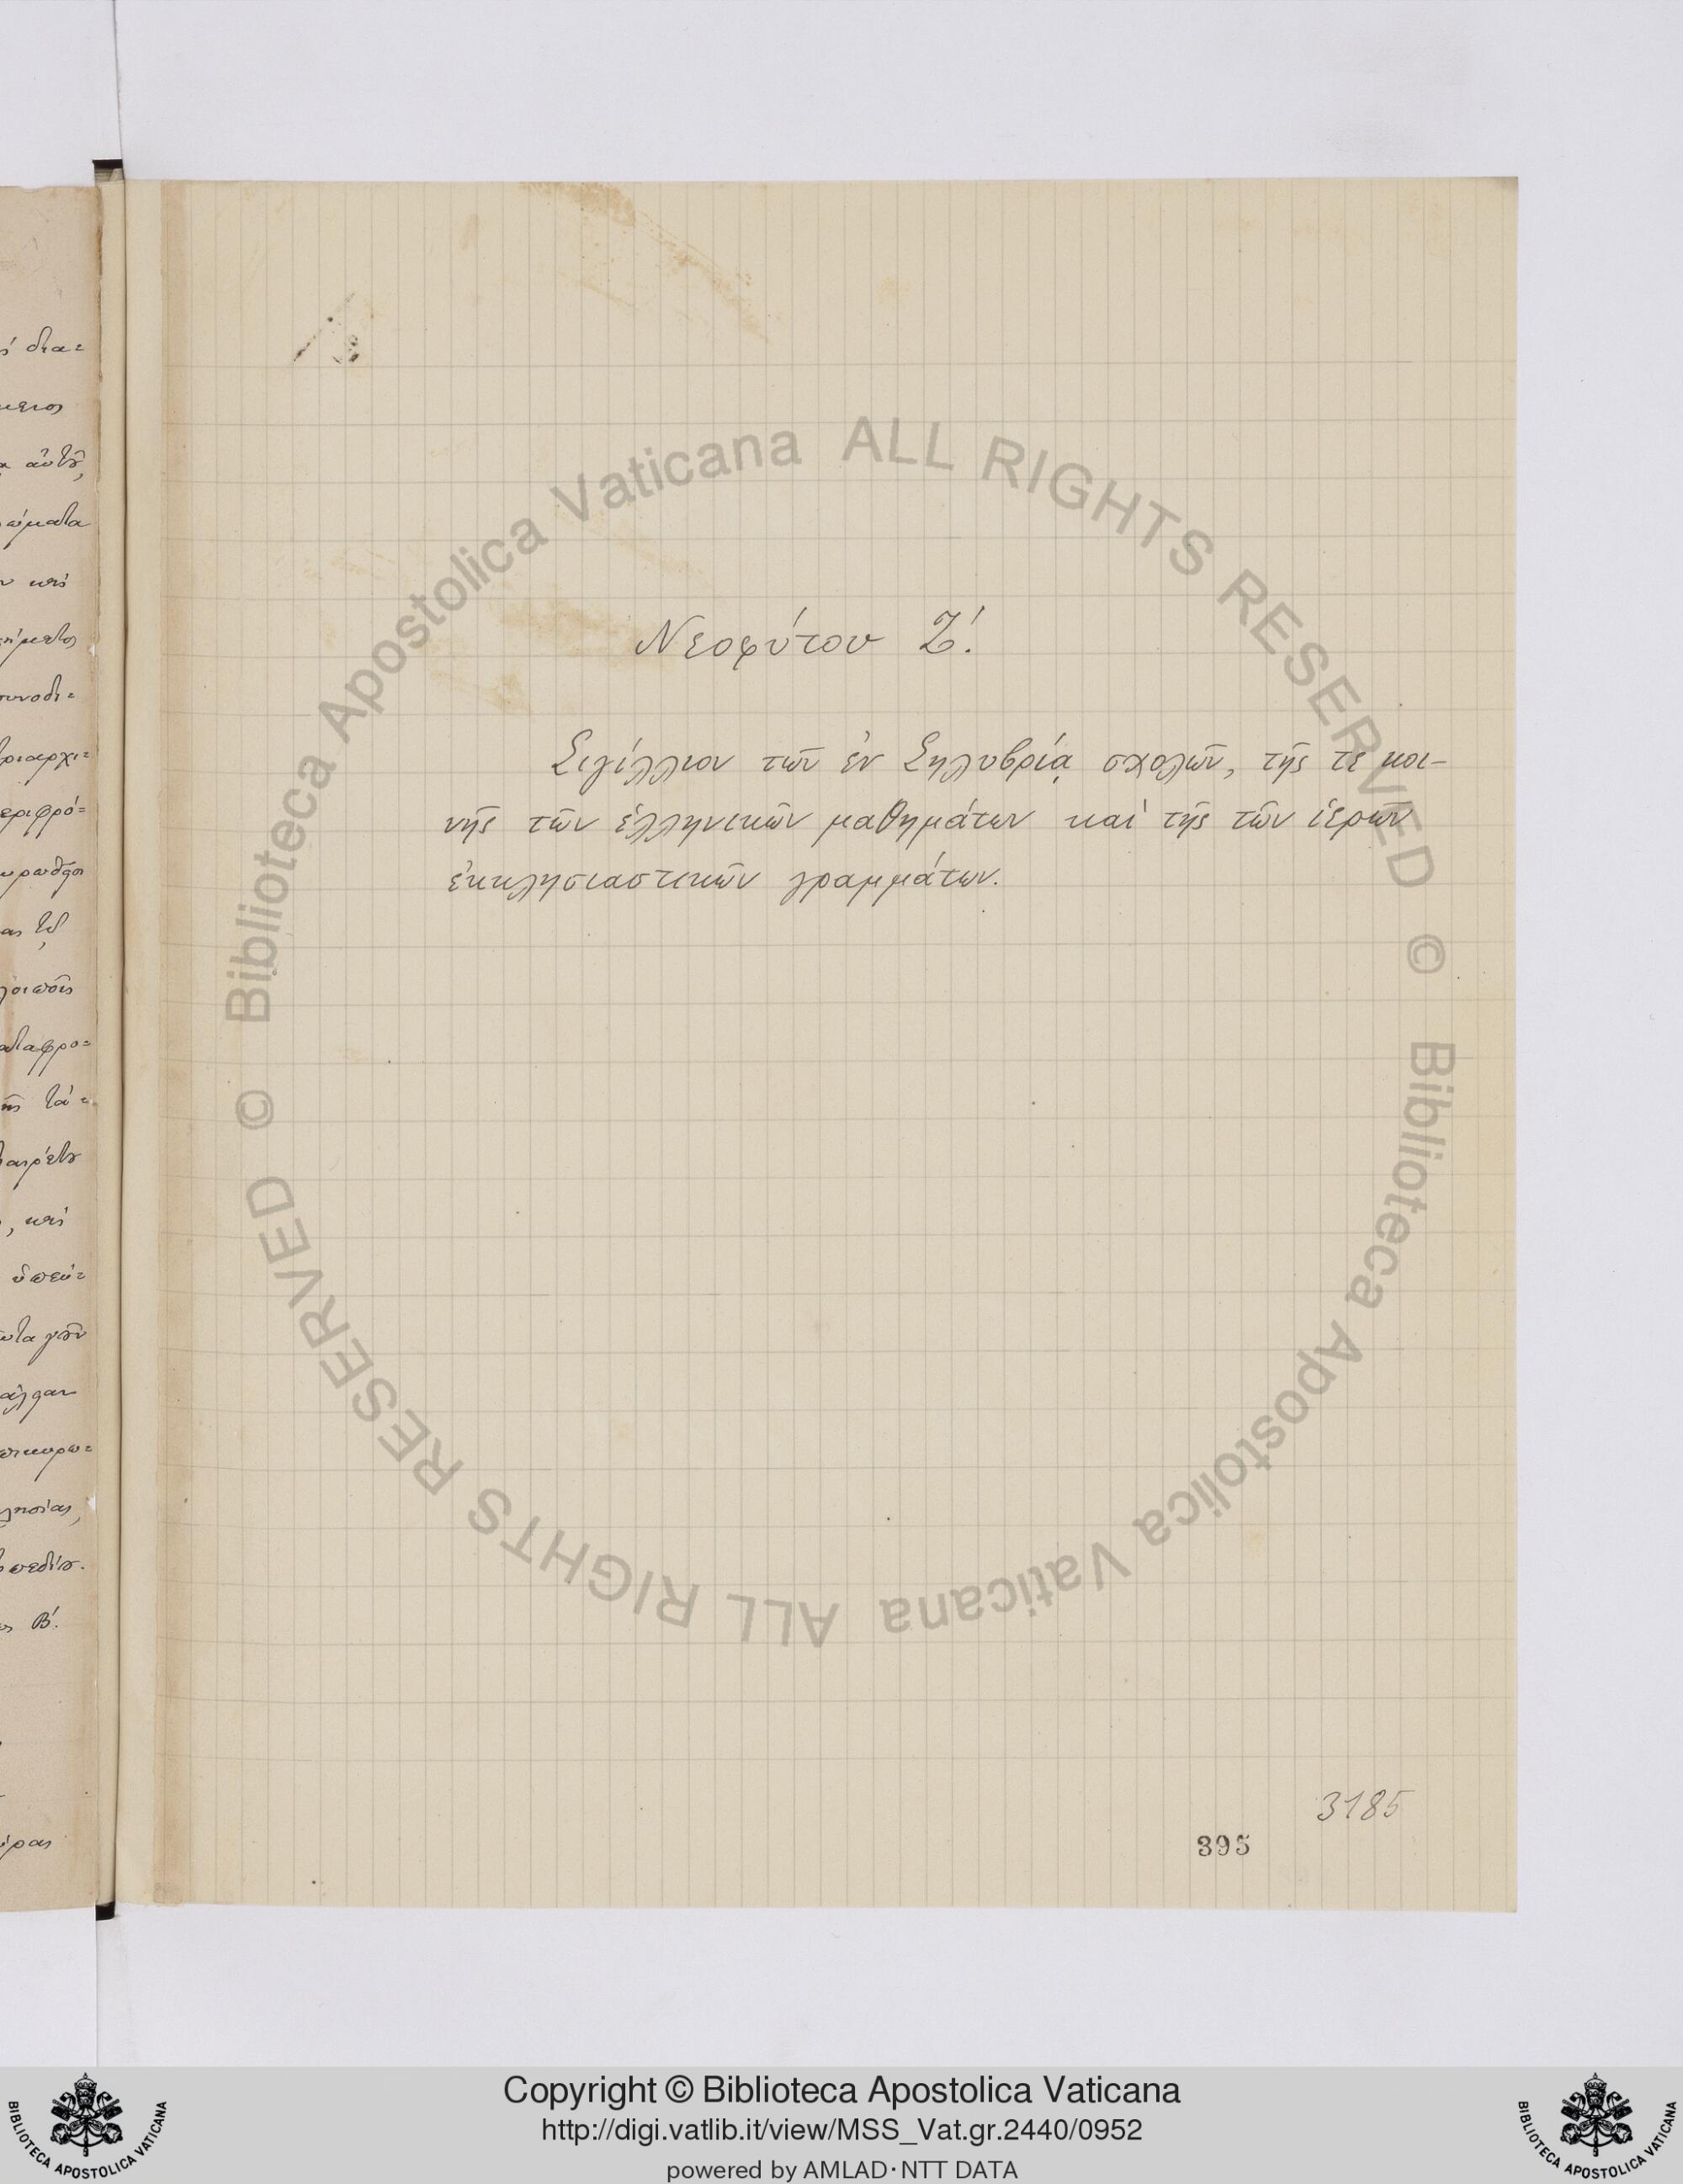 Νεοφύτου Ζ΄.
Σιγίλλιον τῶν ἐν Σηλυβρίᾳ σχολῶν, τῆς τε κοι-
νῆς τῶν ἑλληνικῶν μαθημάτων καὶ τῆς τῶν ἱερῶν
ἐκκλησιαστικῶν γραμμάτων.
3185
395
© Biblioteca Apostolica Vaticana ALL RIGHTS RESERVED
© Biblioteca Apostolica Vaticana ALL RIGHTS RESERVED
Copyright © Biblioteca Apostolica Vaticana
http://digi.vatlib.it/view/MSS_Vat.gr.2440/0952
powered by AMLAD·NTT DATA
BIBLIOTECA APOSTOLICA VATICANA
BIBLIOTECA APOSTOLICA VATICANA